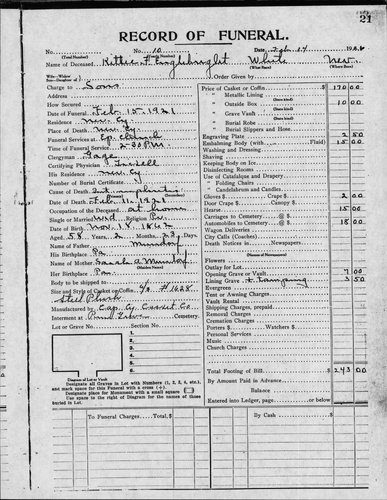 21
RECORD OF FUNERAL.
No. No. 10 Date Feb 14 192
(Total Number) (Yearly Number)
Name of Deceased Kittie F. Englebright White Nev.
(What Race) (Where Born)
Wife—Widow
Son—Daughter of Order Given by
Charge to Sons
Address
How Secured
Date of Funeral Feb. 15 1921
Residence Nev. Cy.
Place of Death Nev. Cy.
Funeral Services at Ep. Church
Time of Funeral Service 2-30 P.M.
Clergyman
Certifying Physician
His Residence Nev. Cy
Number of Burial Certificate
Cause of Death
Date of Death Feb. 11, 1921
Occupation of the Deceased at home
Single or Married Wid. Religion Pro.
Date of Birth Nov. 18, 1862
Aged 58 Years 2 Months 23 Days
Name of Father Mundorf
His Birthplace Pa.
Name of Mother Sarah A. Mundorf
(Maiden Name)
Her Birthplace Pa.
Body to be shipped to
Size and Style of Casket or Coffin 6/3 #1628
Steel Plush
Manufactured by Cap. Cy. Casket Co
Interment at Cemetery.
Lot or Grave No. Section No.
1.
2.
3.
4.
5.
6.
Diagram of Lot or Vault
Designate all Graves in Lot with Numbers (1, 2, 3, 4, etc.),
and mark space for this Funeral with a cross (+).
Designate place for Monument with a small square
Use space to the right of Diagram for the names of those
buried in Lot.
Price of Casket or Coffin $ 170 00
(State kind)
" Metallic Lining
(State kind)
" Outside Box 10 00
(State kind)
" Grave Vault
" Burial Robe
(State kind)
" Burial Slippers and Hose
Engraving Plate 2 50
Embalming Body (with Fluid) 15 00
Washing and Dressing
Shaving
Keeping Body on Ice
Disinfecting Rooms
Use of Catafalque and Drapery
" Folding Chairs
" Candelabrum and Candles
Gloves $ Crape $ 2 00
Door Crape $ Canopy $
Hearse 15 00
Carriages to Cemetery @ $
Automobiles to Cemetery @ $ 18 00
Wagon Deliveries
City Calls (Coaches)
Death Notices in Newspapers
(Names of Newspapers)
Flowers
Outlay for Lot
Opening Grave or Vault 7 00
Lining Grave + Tamping 3 50
Evergreen
Tent or Awning Charges
Vault Rental
Shipping Charges, prepaid
Removal Charges
Cremation Charges
Porters $ Watchers $
Music
Church Charges
Total Footing of Bill $ 243 00
By Amount Paid in Advance
Balance
Entered into Ledger, page or below.
To Funeral Charges Total, $ By Cash $